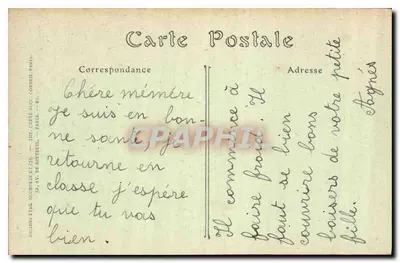 Carte Postale
Correspondance
Adresse
Chére mémére
Je suis en bon-
ne santé je
retourne en
classe j'espére
que tu vas
bien.
Il commence à
faire froid. Il
faut se bien
couvrire bons
baisers de votre petite
fille.
Agnés
CPArama.com